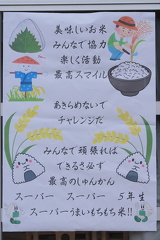 美味しいお米
みんなで協力
楽しく活動
最高スマイル
あきらめないで
チャレンジだ
みんなで頑張れば
できるさ必ず
最高のしゅんかん
スーパー スーパー 5年生
スーパーうまいもちもち米!!